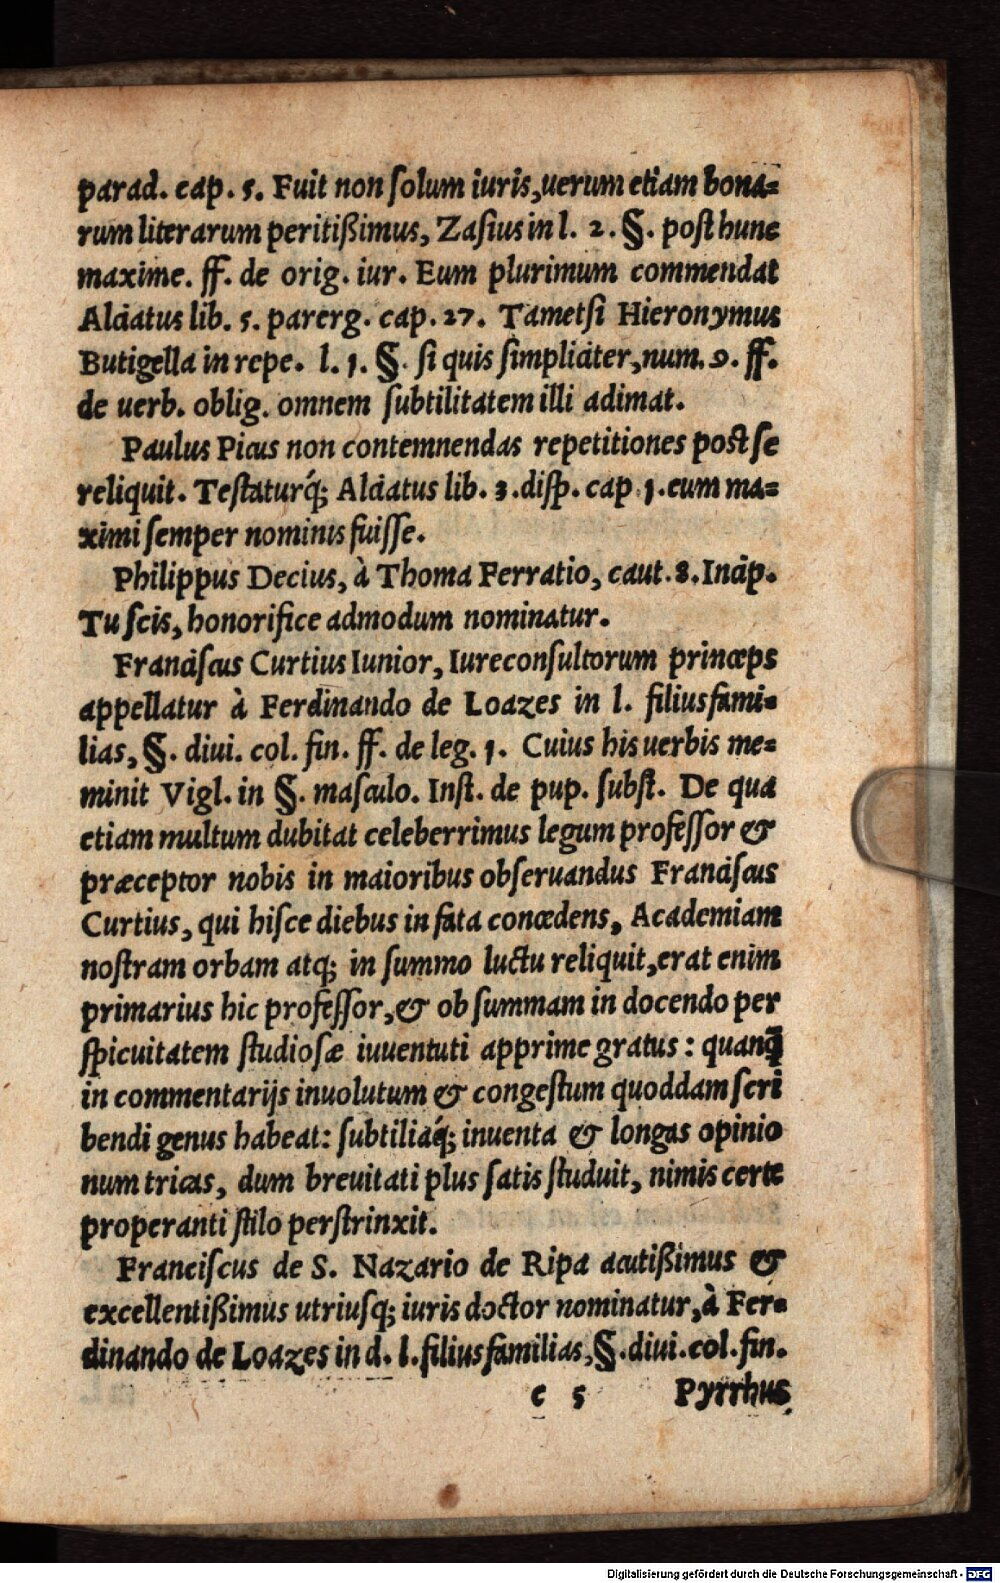 parad. cap. 5. Fuit non ſolum iuris, uerum etiam bona=
rum literarum peritißimus, Zaſius in l. 2. §. poſt hunc
maxime. ff. de orig. iur. Eum plurimum commendat
Alciatus lib. 5. parerg. cap. 27. Tametſi Hieronymus
Butigella in repe. l. 1. §. ſi quis ſimpliciter, num. 9. ff.
de uerb. oblig. omnem ſubtilitatem illi adimat.
Paulus Picus non contemnendas repetitiones poſt ſe
reliquit. Teſtaturq́; Alciatus lib. 3. diſp. cap 1. eum ma=
ximi ſemper nominis fuiſſe.
Philippus Decius, à Thoma Ferratio, caut. 8. Incip.
Tuſcis, honorifice admodum nominatur.
Franciſcus Curtius Iunior, Iureconſultorum princeps
appellatur à Ferdinando de Loazes in l. filiusfami=
lias, §. diui. col. fin. ff. de leg. 1. Cuius his uerbis me=
minit Vigl. in §. maſculo. Inſt. de pup. ſubſt. De qua
etiam multum dubitat celeberrimus legum profeſſor &
præceptor nobis in maioribus obſeruandus Franciſcus
Curtius, qui hiſce diebus in fata concedens, Academiam
noſtram orbam atq; in ſummo luctu reliquit, erat enim
primarius hic profeſſor, & ob ſummam in docendo per
ſpicuitatem ſtudioſæ iuuentuti apprime gratus: quanq̃
in commentarijs inuolutum & congeſtum quoddam ſcri
bendi genus habeat: ſubtiliaq́; inuenta & longas opinio
num tricas, dum breuitati plus ſatis ſtuduit, nimis certe
properanti ſtilo perſtrinxit.
Franciſcus de S. Nazario de Ripa acutißimus &
excellentißimus utriuſq; iuris doctor nominatur, à Fer=
dinando de Loazes in d. l. filiusfamilias, §. diui. col. fin.
c 5 Pyrrhus
Digitalisierung gefördert durch die Deutsche Forschungsgemeinschaft - DFG